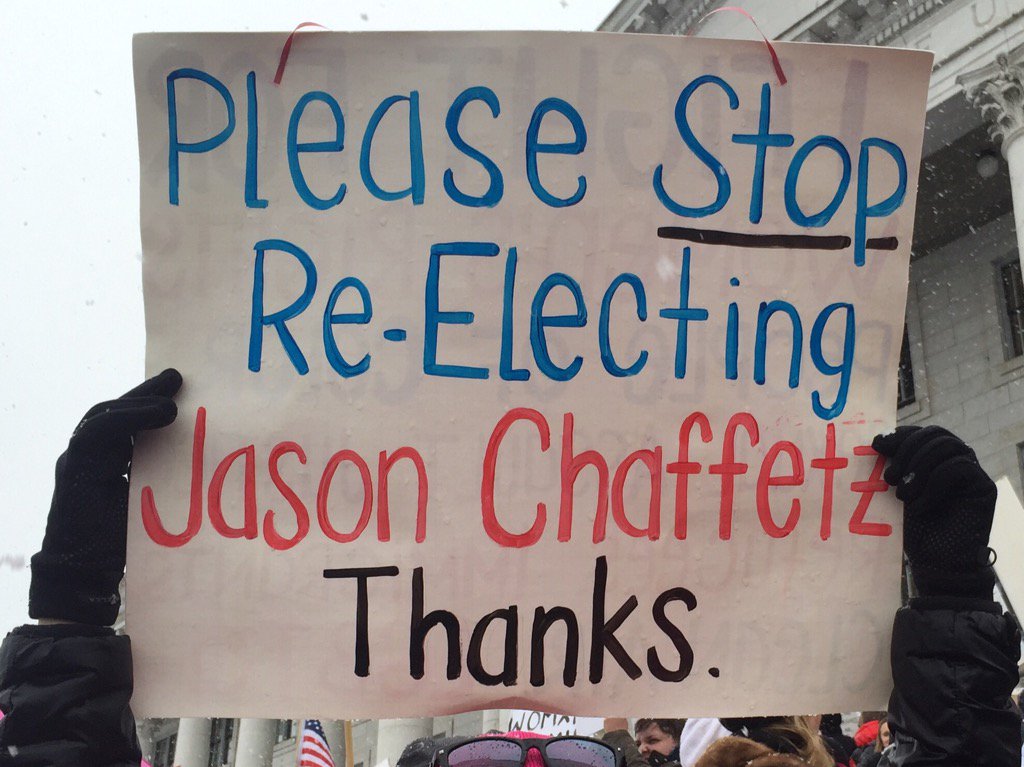 Please Stop
Re-Electing
Jason Chaffetz
Thanks.